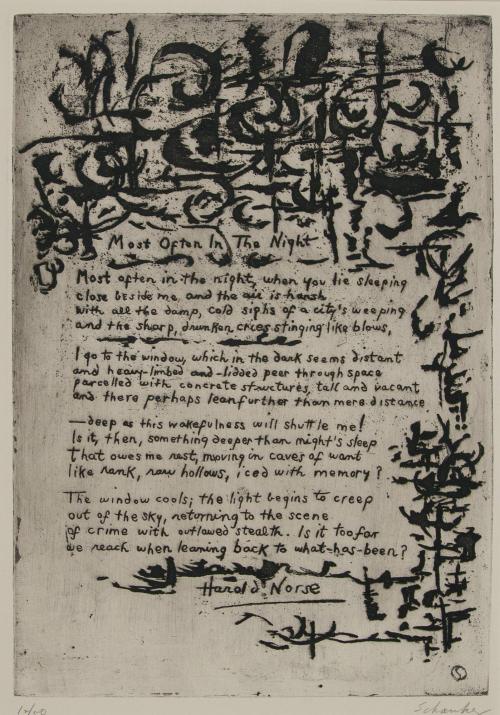 Most Often In The Night
Most often in the night, when you lie sleeping
close beside me, and the air is harsh
with all the damp, cold sighs of a city's weeping
and the sharp, drunken cries stinging like blows,
I go to the window, which in the dark seems distant
and heavy-limbed and -lidded peer through space
parcelled with concrete structures, tall and vacant
and there perhaps lean further than mere distance
—deep as this wakefulness will shuttle me!
Is it, then, something deeper than night's sleep
that owes me rest, moving in caves of want
like rank, raw hollows, iced with memory?
The window cools; the light begins to creep
out of the sky, returning to the scene
of crime with outlawed stealth. Is it too far
we reach when leaning back to what-has-been?
Harold Norse
Schanker